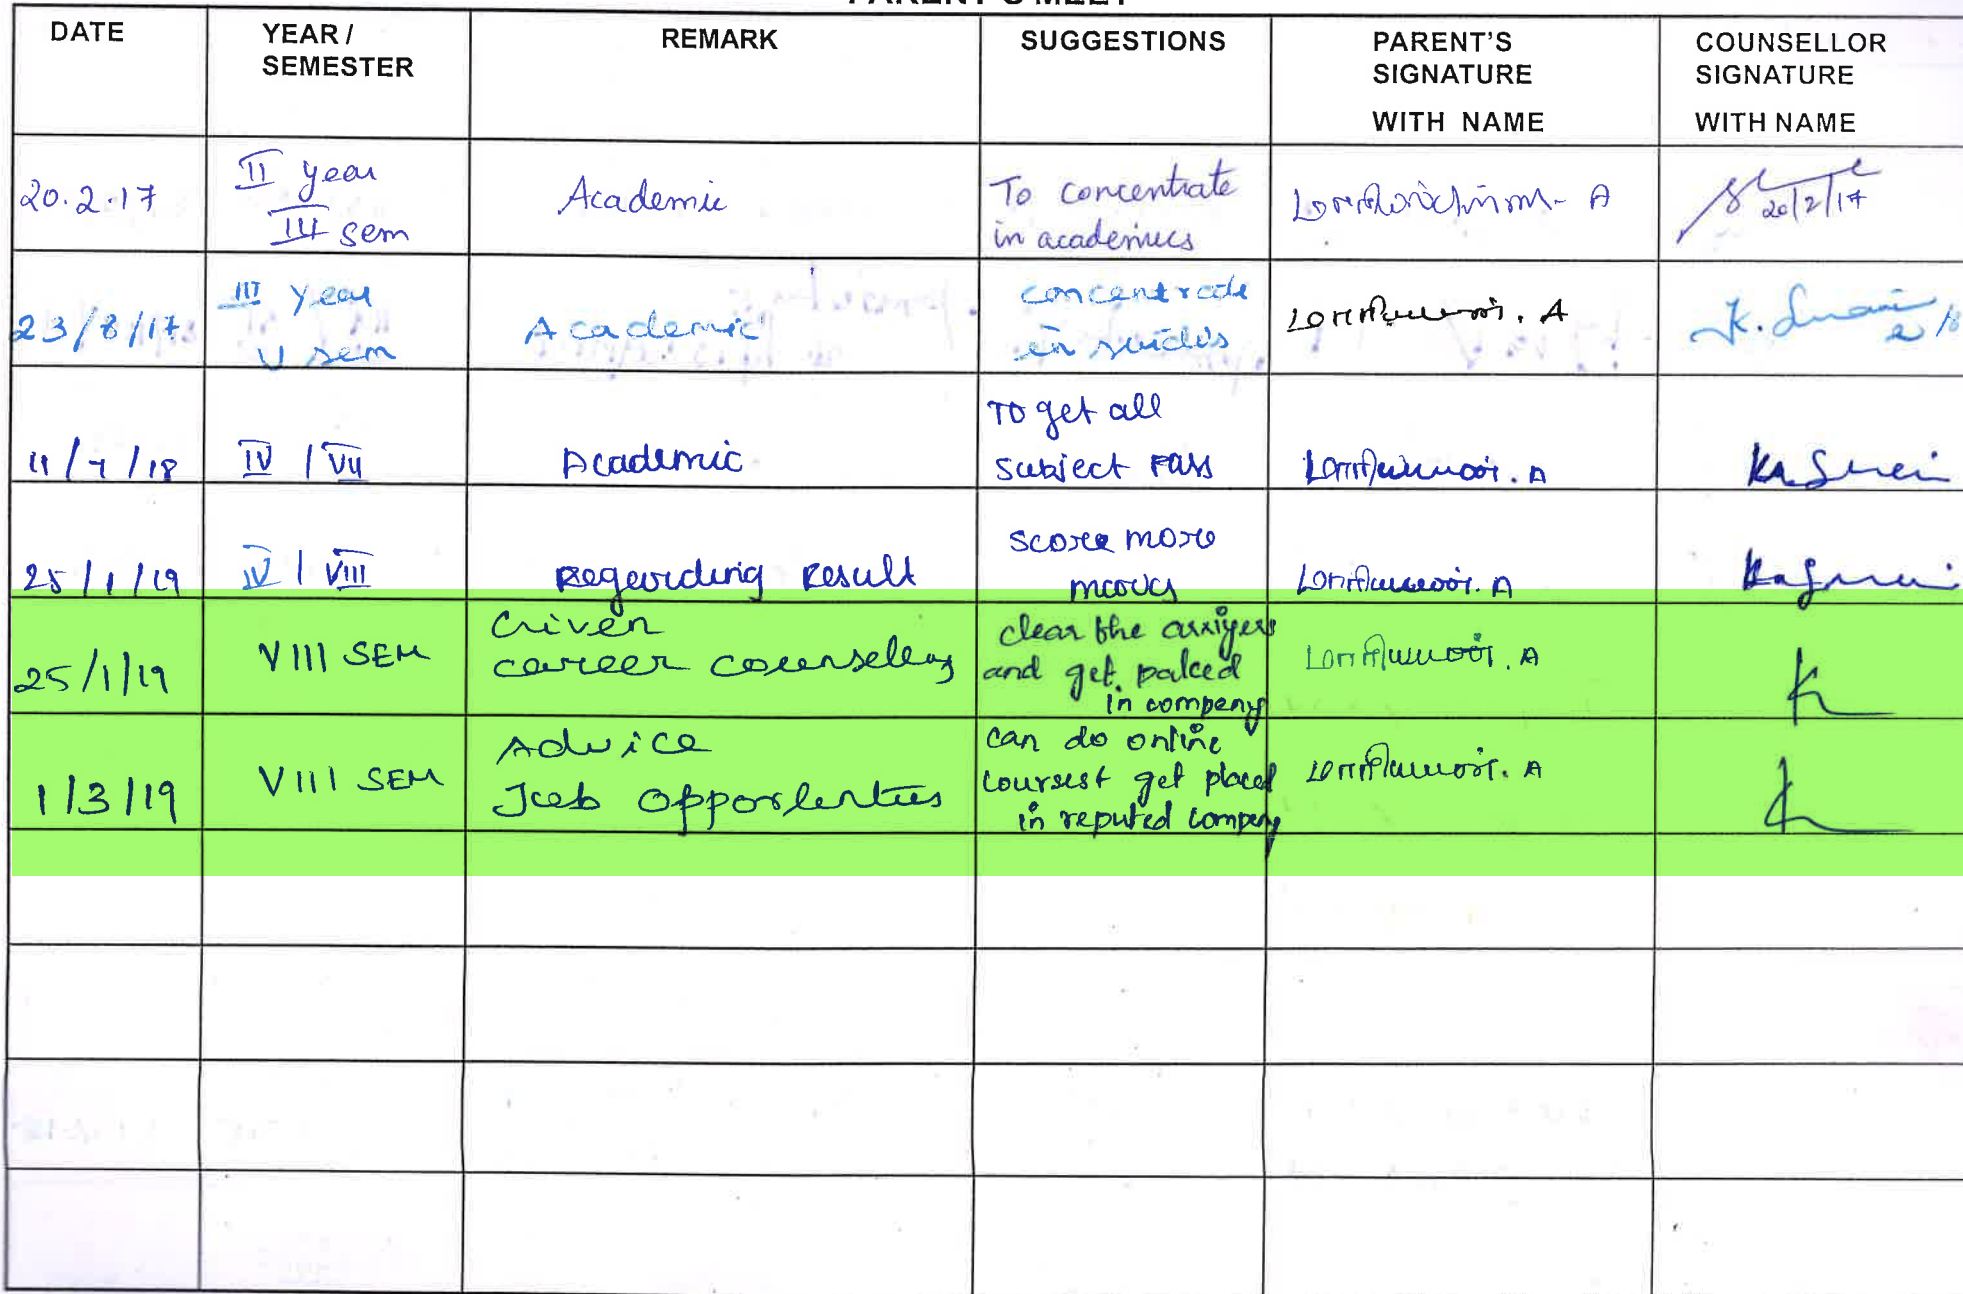 PARENT'S MEET
DATE
YEAR /
SEMESTER
REMARK
SUGGESTIONS
PARENT'S
SIGNATURE
WITH NAME
COUNSELLOR
SIGNATURE
WITH NAME
20.2.17
II year
III sem
Academic
To concentrate
in academics
A
20/2/17
23/8/17
III year
V sem
Academic
concentrade
in
. A
K.
11/7/18
IV / VII
Academic
To get all
subject pass
. A
25/1/19
IV / VIII
Regarding Result
score more
. A
25/1/19
VIII SEM
Given
career
clear the
and get palced
in company
. A
K
1/3/19
VIII SEM
Advice
Job
can do online
get placed
in reputed company
. A